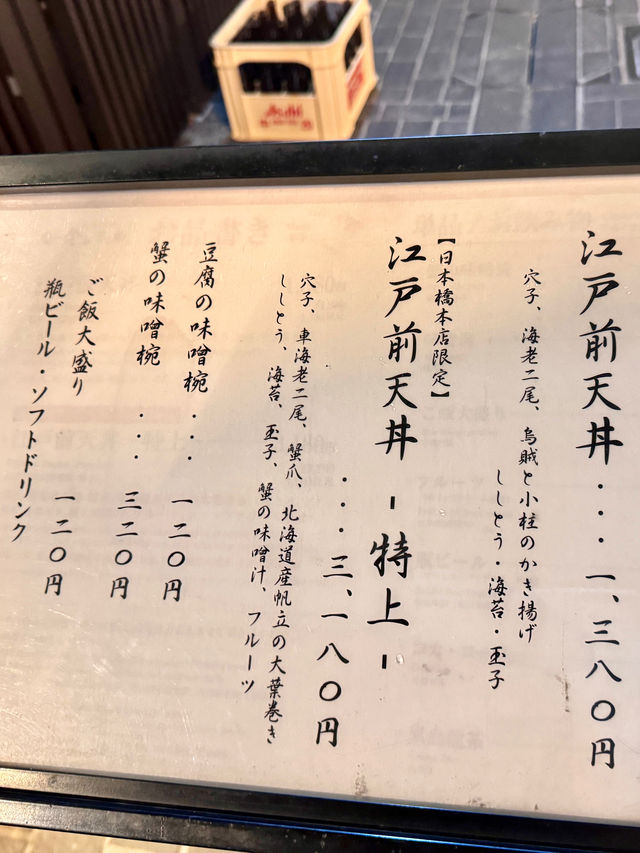 江戸前天丼・・・一、三八〇円
穴子、海老二尾、烏賊と小柱のかき揚げ
ししとう・海苔・玉子
【日本橋本店限定】
江戸前天丼 -特上-
・・・三、一八〇円
穴子、車海老二尾、蟹爪、北海道産帆立の大葉巻き
ししとう、海苔、玉子、蟹の味噌汁、フルーツ
豆腐の味噌椀・・・一二〇円
蟹の味噌椀・・・三二〇円
ご飯大盛り 一二〇円
瓶ビール・ソフトドリンク
Asahi